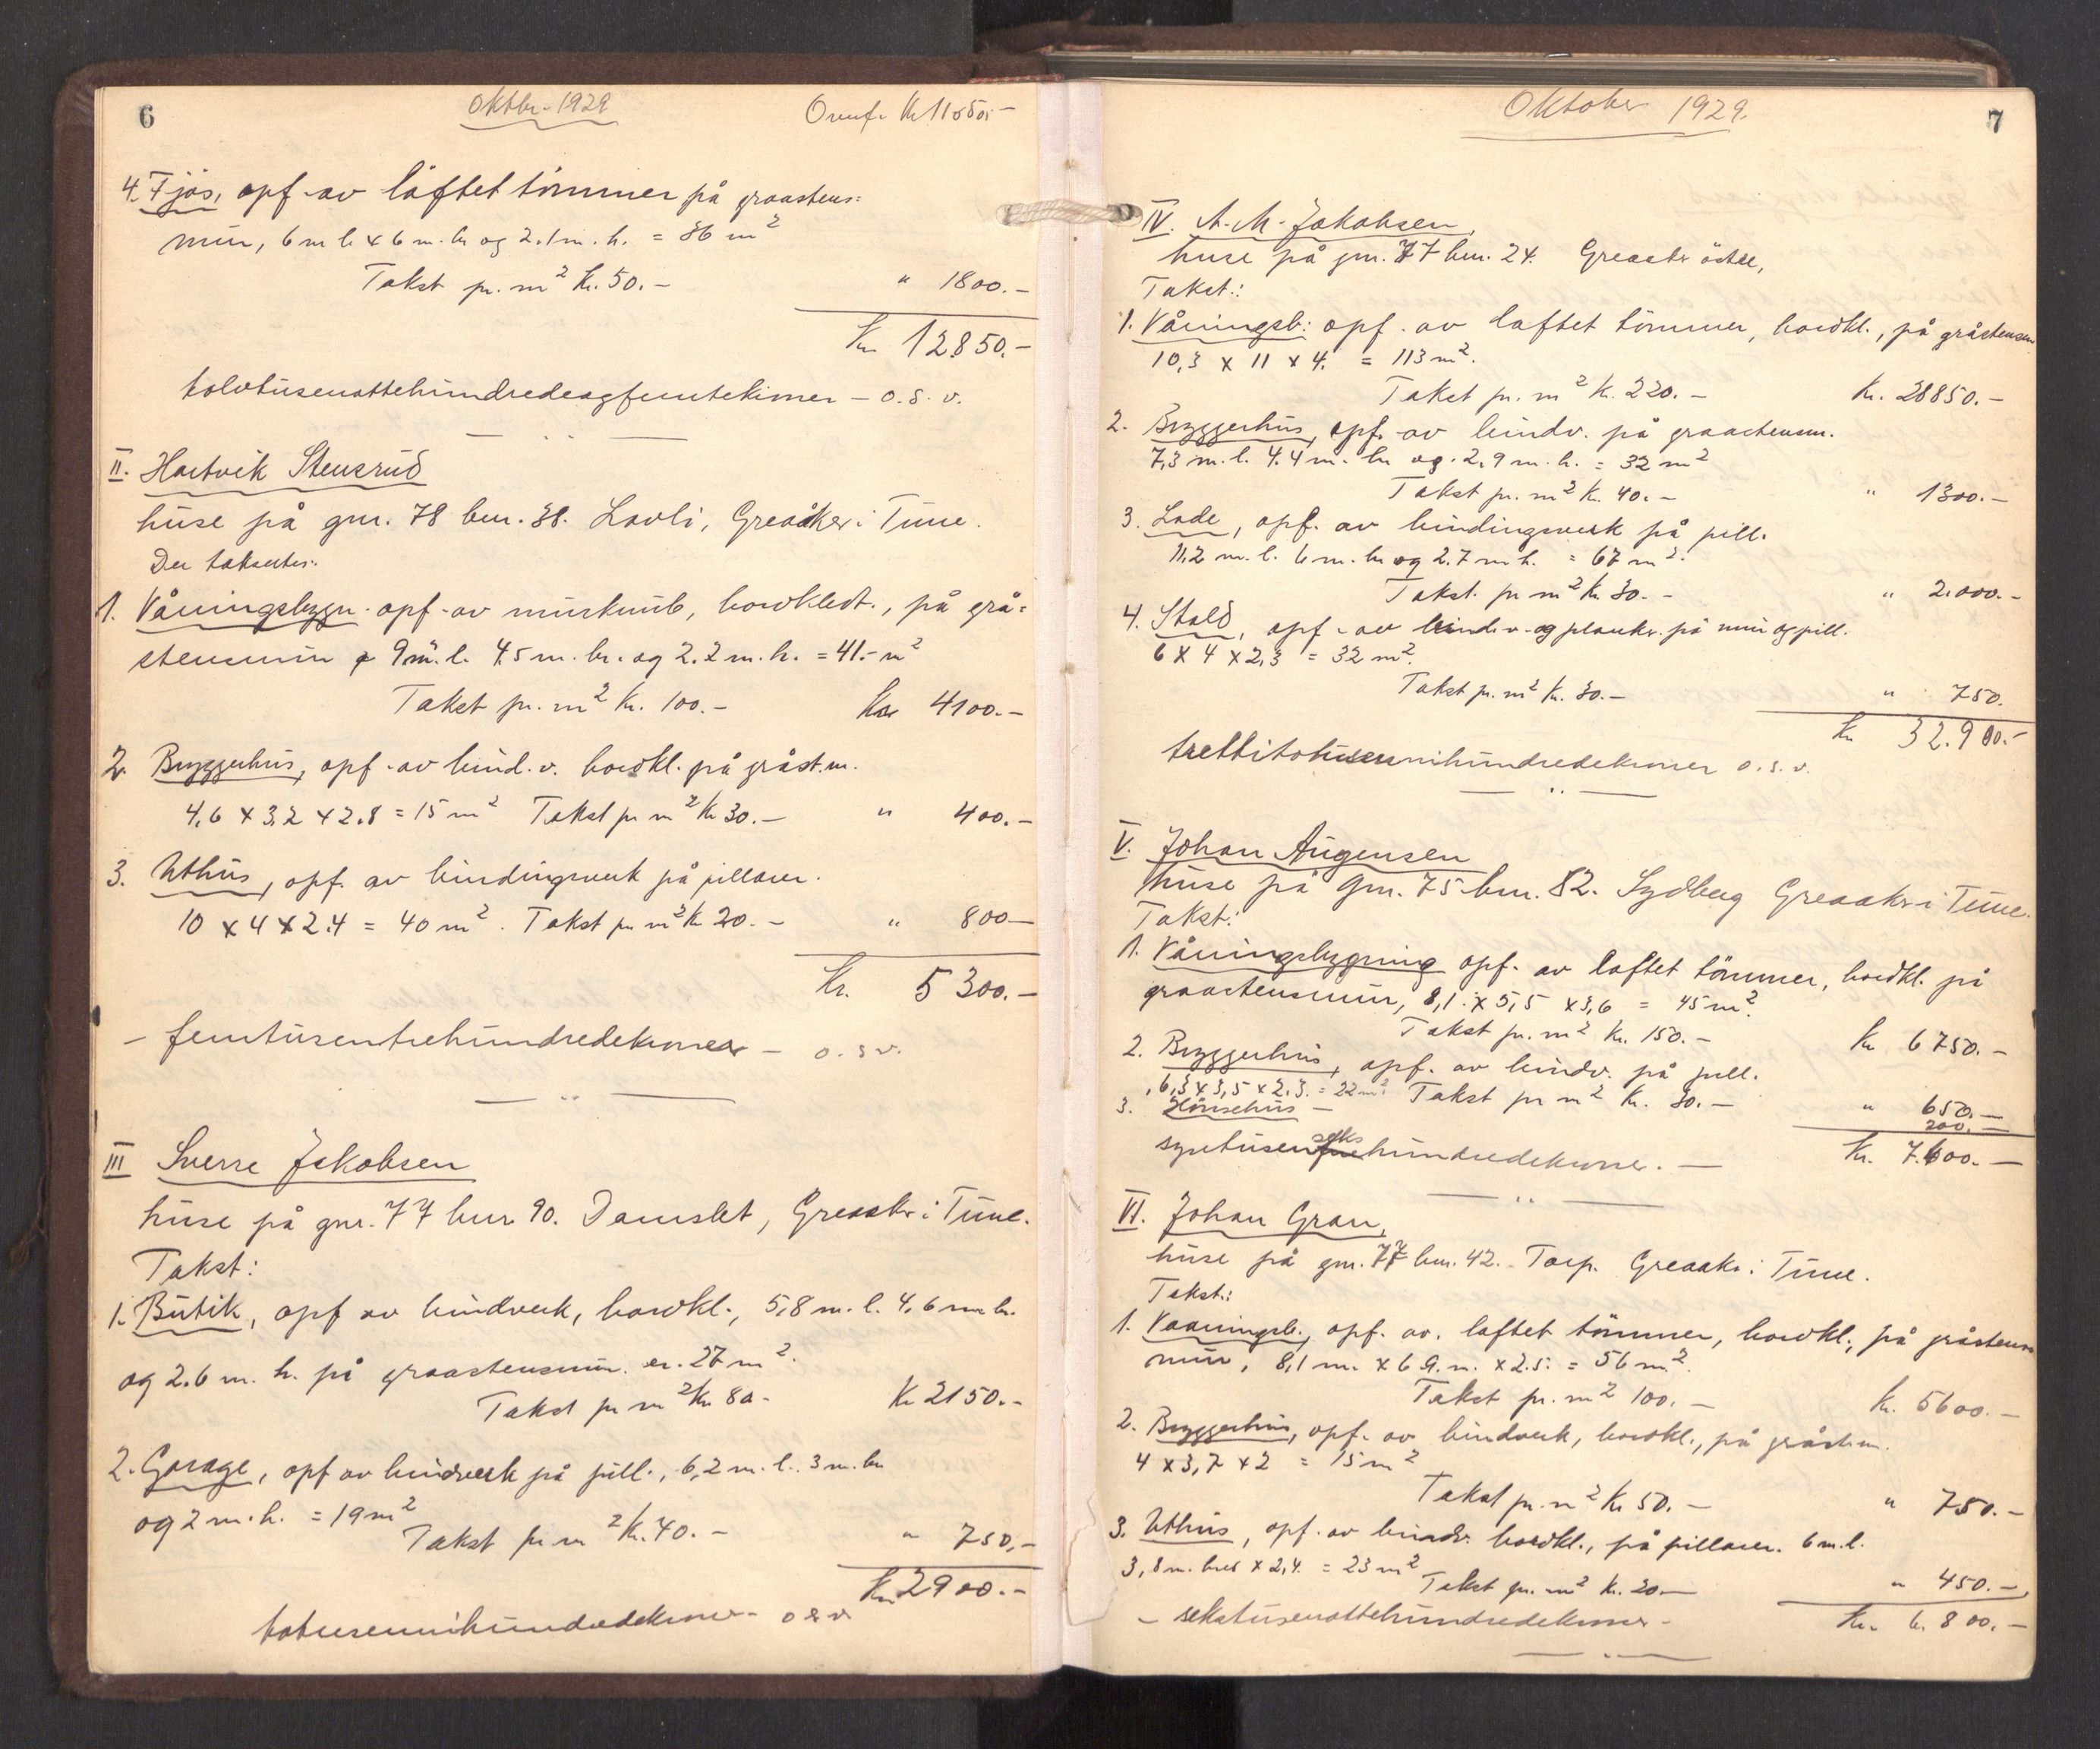 6
Oktbr. 1929
Overf. Kr 11050.-
4. Fjøs, opf. av låftet tömmer på graastens=
mur, 6 m l. x 6 m. br og 2.1 m. h. = 36 m²
Takst pr. m² Kr. 50.-
" 1800.-
Kr. 12850.-
tolvtusenottehundredeogfemtikroner - o. s. v.
II. Hartvik Stensrud
huse på gnr. 78 bnr. 38. Lavli, Greaaker i Tune.
Der takseres:
1. Våningsbygn. opf. av murkub, bordkledt., på grå=
stensmur 9 m. l. 4.5 m. br. og 2.2 m. h. = 41.- m²
Takst pr. m² Kr. 100.-
Kr 4100.-
2. Bryggerhus, opf. av bind. v. bordkl. på gråst.m.
4,6 x 3,2 x 2.8 = 15 m² Takst pr m² Kr 30.-
" 400.-
3. Uthus, opf. av bindingsverk på pillarer.
10 x 4 x 2.4 = 40 m². Takst pr. m² Kr 20.-
" 800-
Kr. 5300.-
- femtusentrehundredekroner - o. s v.
III Sverre Jakobsen
huse på gnr. 77 bnr 90. Damslet, Greaaker i Tune.
Takst:
1. Butik, opf av bindverk, bordkl., 5,8 m. l. 4,6 m br.
og 2.6 m. h. på graastensmur. er. 27 m².
Takst pr m² Kr 80-
Kr 2150.-
2. Garage, opf av bindverk på pill., 6,2 m. l. 3 m. br
og 2 m. h. = 19 m²
Takst pr m² Kr. 40.-
" 750,-
Kr. 2900.-
totusennihundredekroner - o s v
7
Oktober 1929.
IV. A. M. Jakobsen,
huse på gnr. 77 bnr. 24. Greaaker östre,
Takst:
1. Våningsb: opf. av laftet tömmer, bordkl., på gråstensm
10,3 x 11 x 4. = 113 m².
Takst pr. m² Kr. 220.-
Kr. 28850.-
2. Bryggerhus, opf. av bindv. på graastensm.
7,3 m. l. 4.4 m. br og. 2.9 m. h. = 32 m²
Takst pr. m² Kr. 40.-
" 1300.-
3. Lade, opf. av bindingsverk på pill.
11.2 m. l. 6 m. br og 2.7 m h. = 67 m².
Takst. pr m² Kr 30.-
" 2.000.-
4. Stald, opf. av bindv. og plankv. på mur og pill.
6 x 4 x 2,3 = 32 m².
Takst pr. m² Kr. 30.-
" 750.
Kr 32.900.-
trettitotusennihundredekroner o. s. v.
V. Johan Augensen
huse på Gnr. 75 bnr. 82. Sydberg Greaaker i Tune.
Takst:
1. Våningsbygning opf. av laftet tömmer, bordkl. på
graastensmur, 8,1 x 5,5 x 3,6 = 45 m².
Takst pr. m² Kr. 150.-
Kr 6750.-
2. Bryggerhus, opf. av bindv. på pill.
6,3 x 3,5 x 2,3. = 22 m² Takst pr m² Kr. 30.-
" 650.-
3. Hönsehus -
200.-
syvtusenseks hundredekroner. -
Kr. 7.600.-
VI. Johan Gran,
huse på gnr. 77 bnr. 42. Torp. Greaaker i Tune.
Takst:
1. Vaaningsb., opf. av. laftet tömmer, bordkl., på gråstens
mur, 8,1 m. x 6.9. m. x 2.5. = 56 m².
Takst pr. m² 100.-
Kr. 5600.-
2. Bryggerhus, opf. av bindverk, bordkl., på gråst.m.
4 x 3,7 x 2 = 15 m²
Takst pr. m² Kr 50.-
" 750.-
3. Uthus, opf. av bindv. bordkl., på pillarer. 6 m. l.
3,8 m. bred x 2,4. = 23 m²
Takst pr. m² Kr. 20-
" 450.-
- sekstusenottehundredekroner -
Kr. 6.800.-